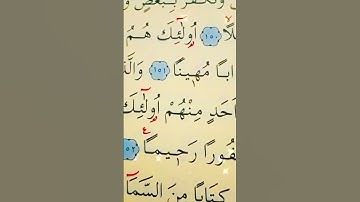 ونكفر ببعض و
لا ١٥٠ أُولَٰئِكَ هُمُ
ابًا مُهِينًا ١٥١ وَالَّذِ
أَحَدٍ مِنْهُمْ أُولَٰئِكَ
غَفُورًا رَحِيمًا ١٥٢
كِتَابًا مِنَ السَّمَا